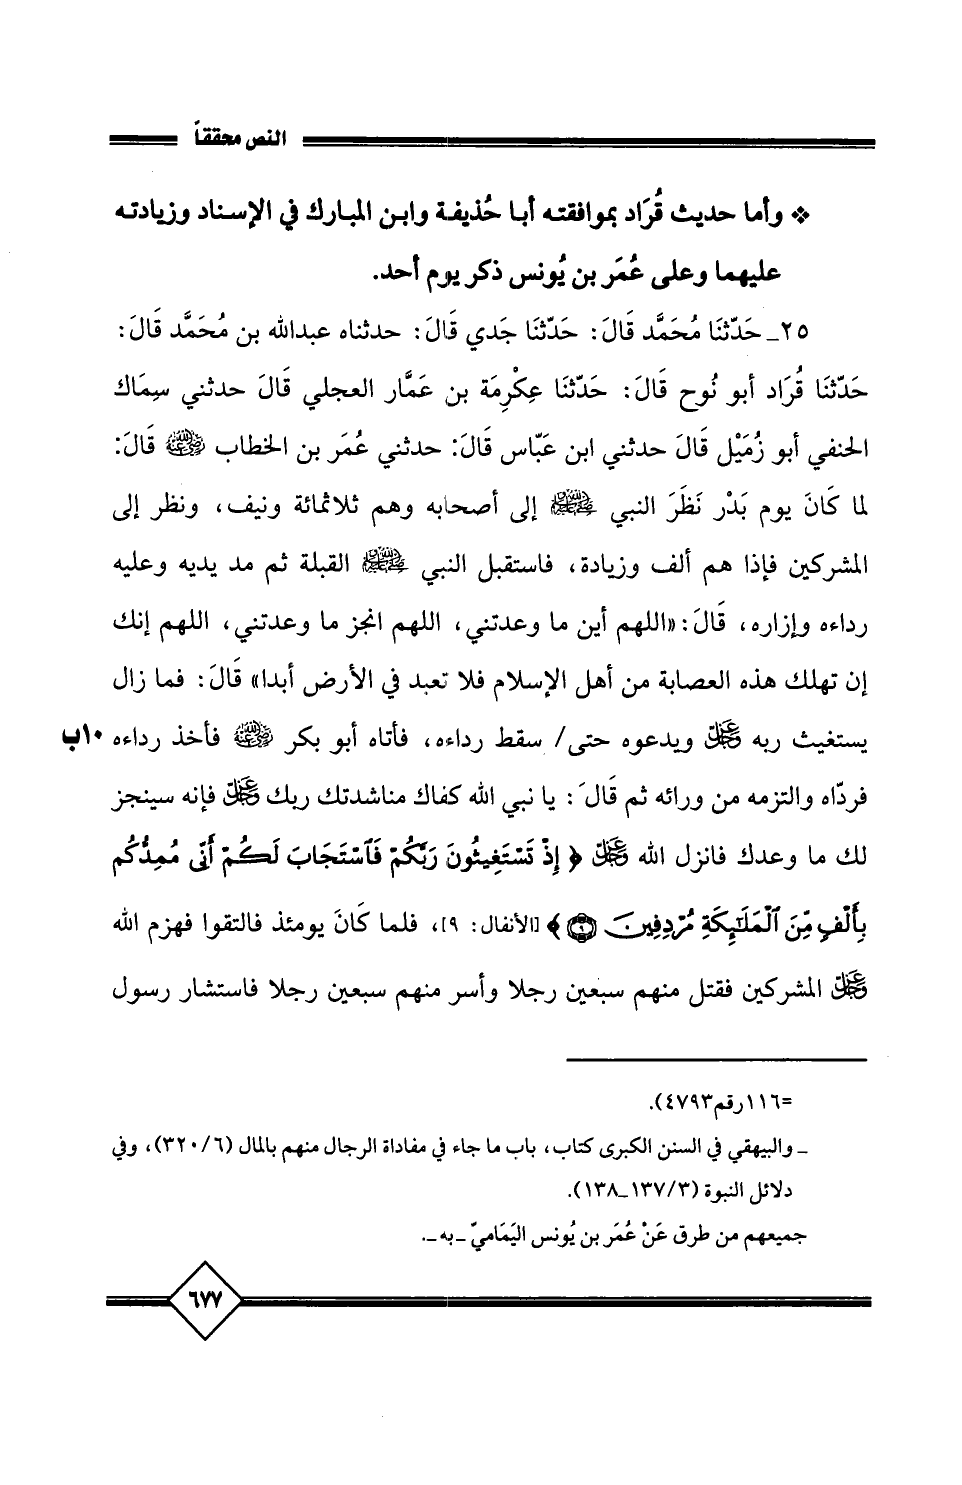 النص محققاً
❖ وأما حديث قُرَاد بموافقته أبا حُذيفة وابن المبارك في الإسناد وزيادته
عليهما وعلى عُمَر بن يُونس ذكر يوم أحد.
٢٥_ حَدّثنَا مُحَمَّد قَالَ: حَدّثنَا جَدي قَالَ: حدثناه عبدالله بن مُحَمَّد قَالَ:
حَدّثنَا قُرَاد أبو نُوح قَالَ: حَدّثنَا عِكْرِمَة بن عَمَّار العجلي قَالَ حدثني سِمَاك
الحنفي أبو زُمَيْل قَالَ حدثني ابن عَبّاس قَالَ: حدثني عُمَر بن الخطاب ﵁ قَالَ:
لما كَانَ يوم بَدْر نَظَرَ النبي ﷺ إلى أصحابه وهم ثلاثمائة ونيف، ونظر إلى
المشركين فإذا هم ألف وزيادة، فاستقبل النبي ﷺ القبلة ثم مد يديه وعليه
رداءه وإزاره، قَالَ: «اللهم أين ما وعدتني، اللهم انجز ما وعدتني، اللهم إنك
إن تهلك هذه العصابة من أهل الإسلام فلا تعبد في الأرض أبدا» قَالَ: فما زال
يستغيث ربه ﷿ ويدعوه حتى/ سقط رداءه، فأتاه أبو بكر ﵁ فأخذ رداءه ١٠ب
فردّاه والتزمه من ورائه ثم قَالَ: يا نبي الله كفاك مناشدتك ربك ﷿ فإنه سينجز
لك ما وعدك فانزل الله ﷿ ﴿ إِذْ تَسْتَغِيثُونَ رَبَّكُمْ فَٱسْتَجَابَ لَكُمْ أَنِّى مُمِدُّكُم
بِأَلْفٍ مِّنَ ٱلْمَلَٰٓئِكَةِ مُرْدِفِينَ ۝٩ ﴾ [الأنفال: ٩]، فلما كَانَ يومئذ فالتقوا فهزم الله
﷿ المشركين فقتل منهم سبعين رجلا وأسر منهم سبعين رجلا فاستشار رسول
=١١٦رقم٤٧٩٣).
_ والبيهقي في السنن الكبرى كتاب، باب ما جاء في مفاداة الرجال منهم بالمال (٣٢٠/٦)، وفي
دلائل النبوة (١٣٧/٣_١٣٨).
جميعهم من طرق عَنْ عُمَر بن يُونس اليَمَاميّ _به_.
٦٧٧